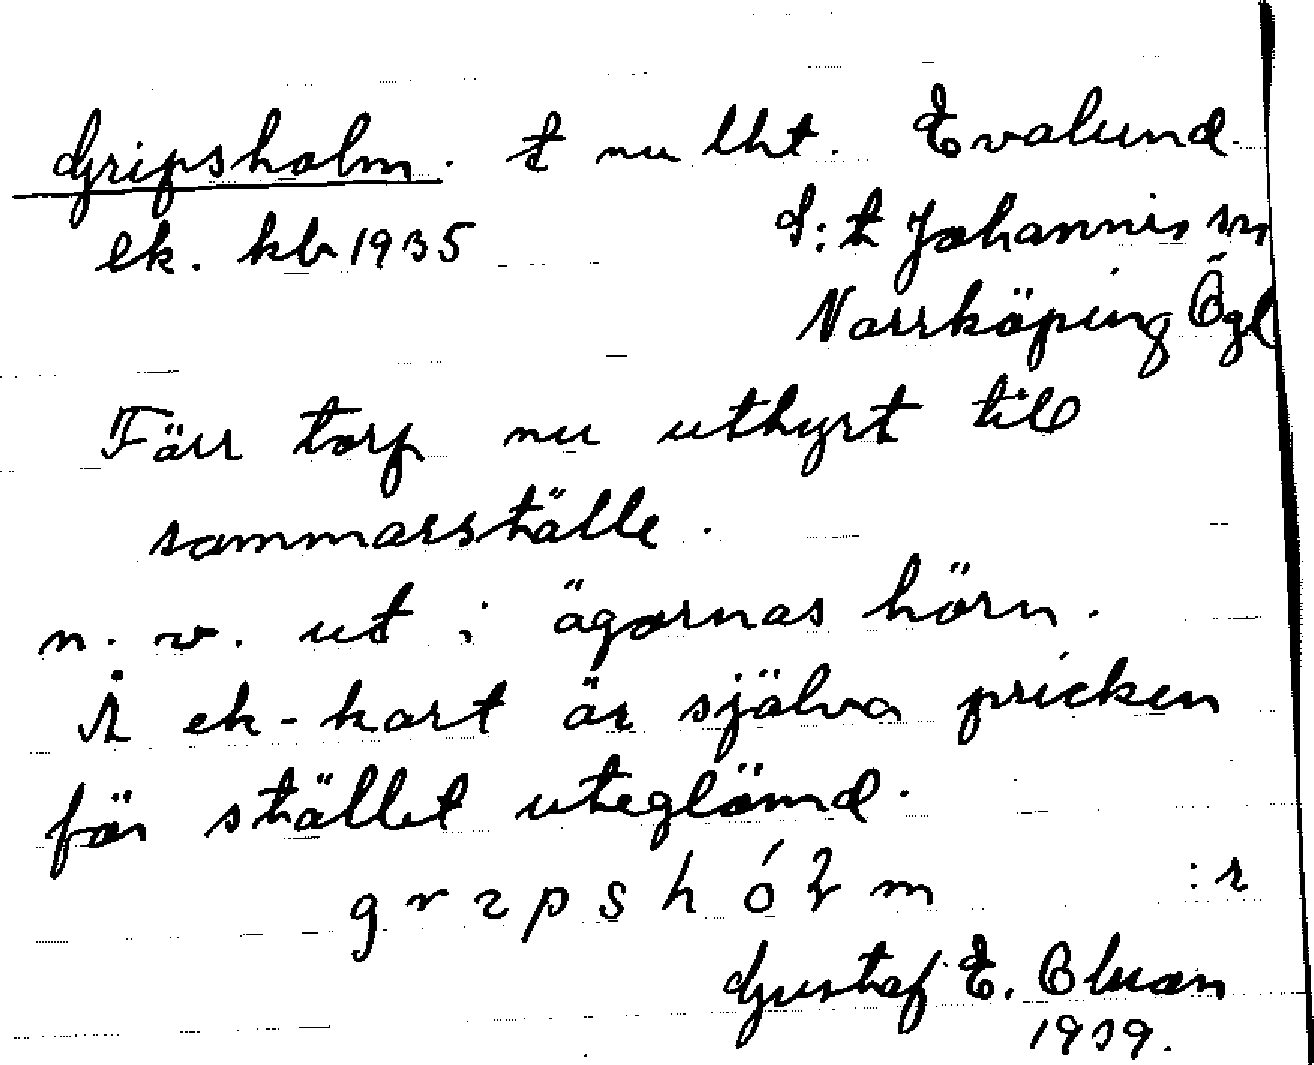 Gripsholm. t nu lht. Evalund.
ek. kb 1935 S:t Johannis sn
Norrköping Ögl
Förr torp nu uthyrt till
sommarställe.
n. v. ut i ägornas hörn.
Å ek-kart är själva pricken
för stället uteglömd.
:r
Gustaf E. Olson
1939.